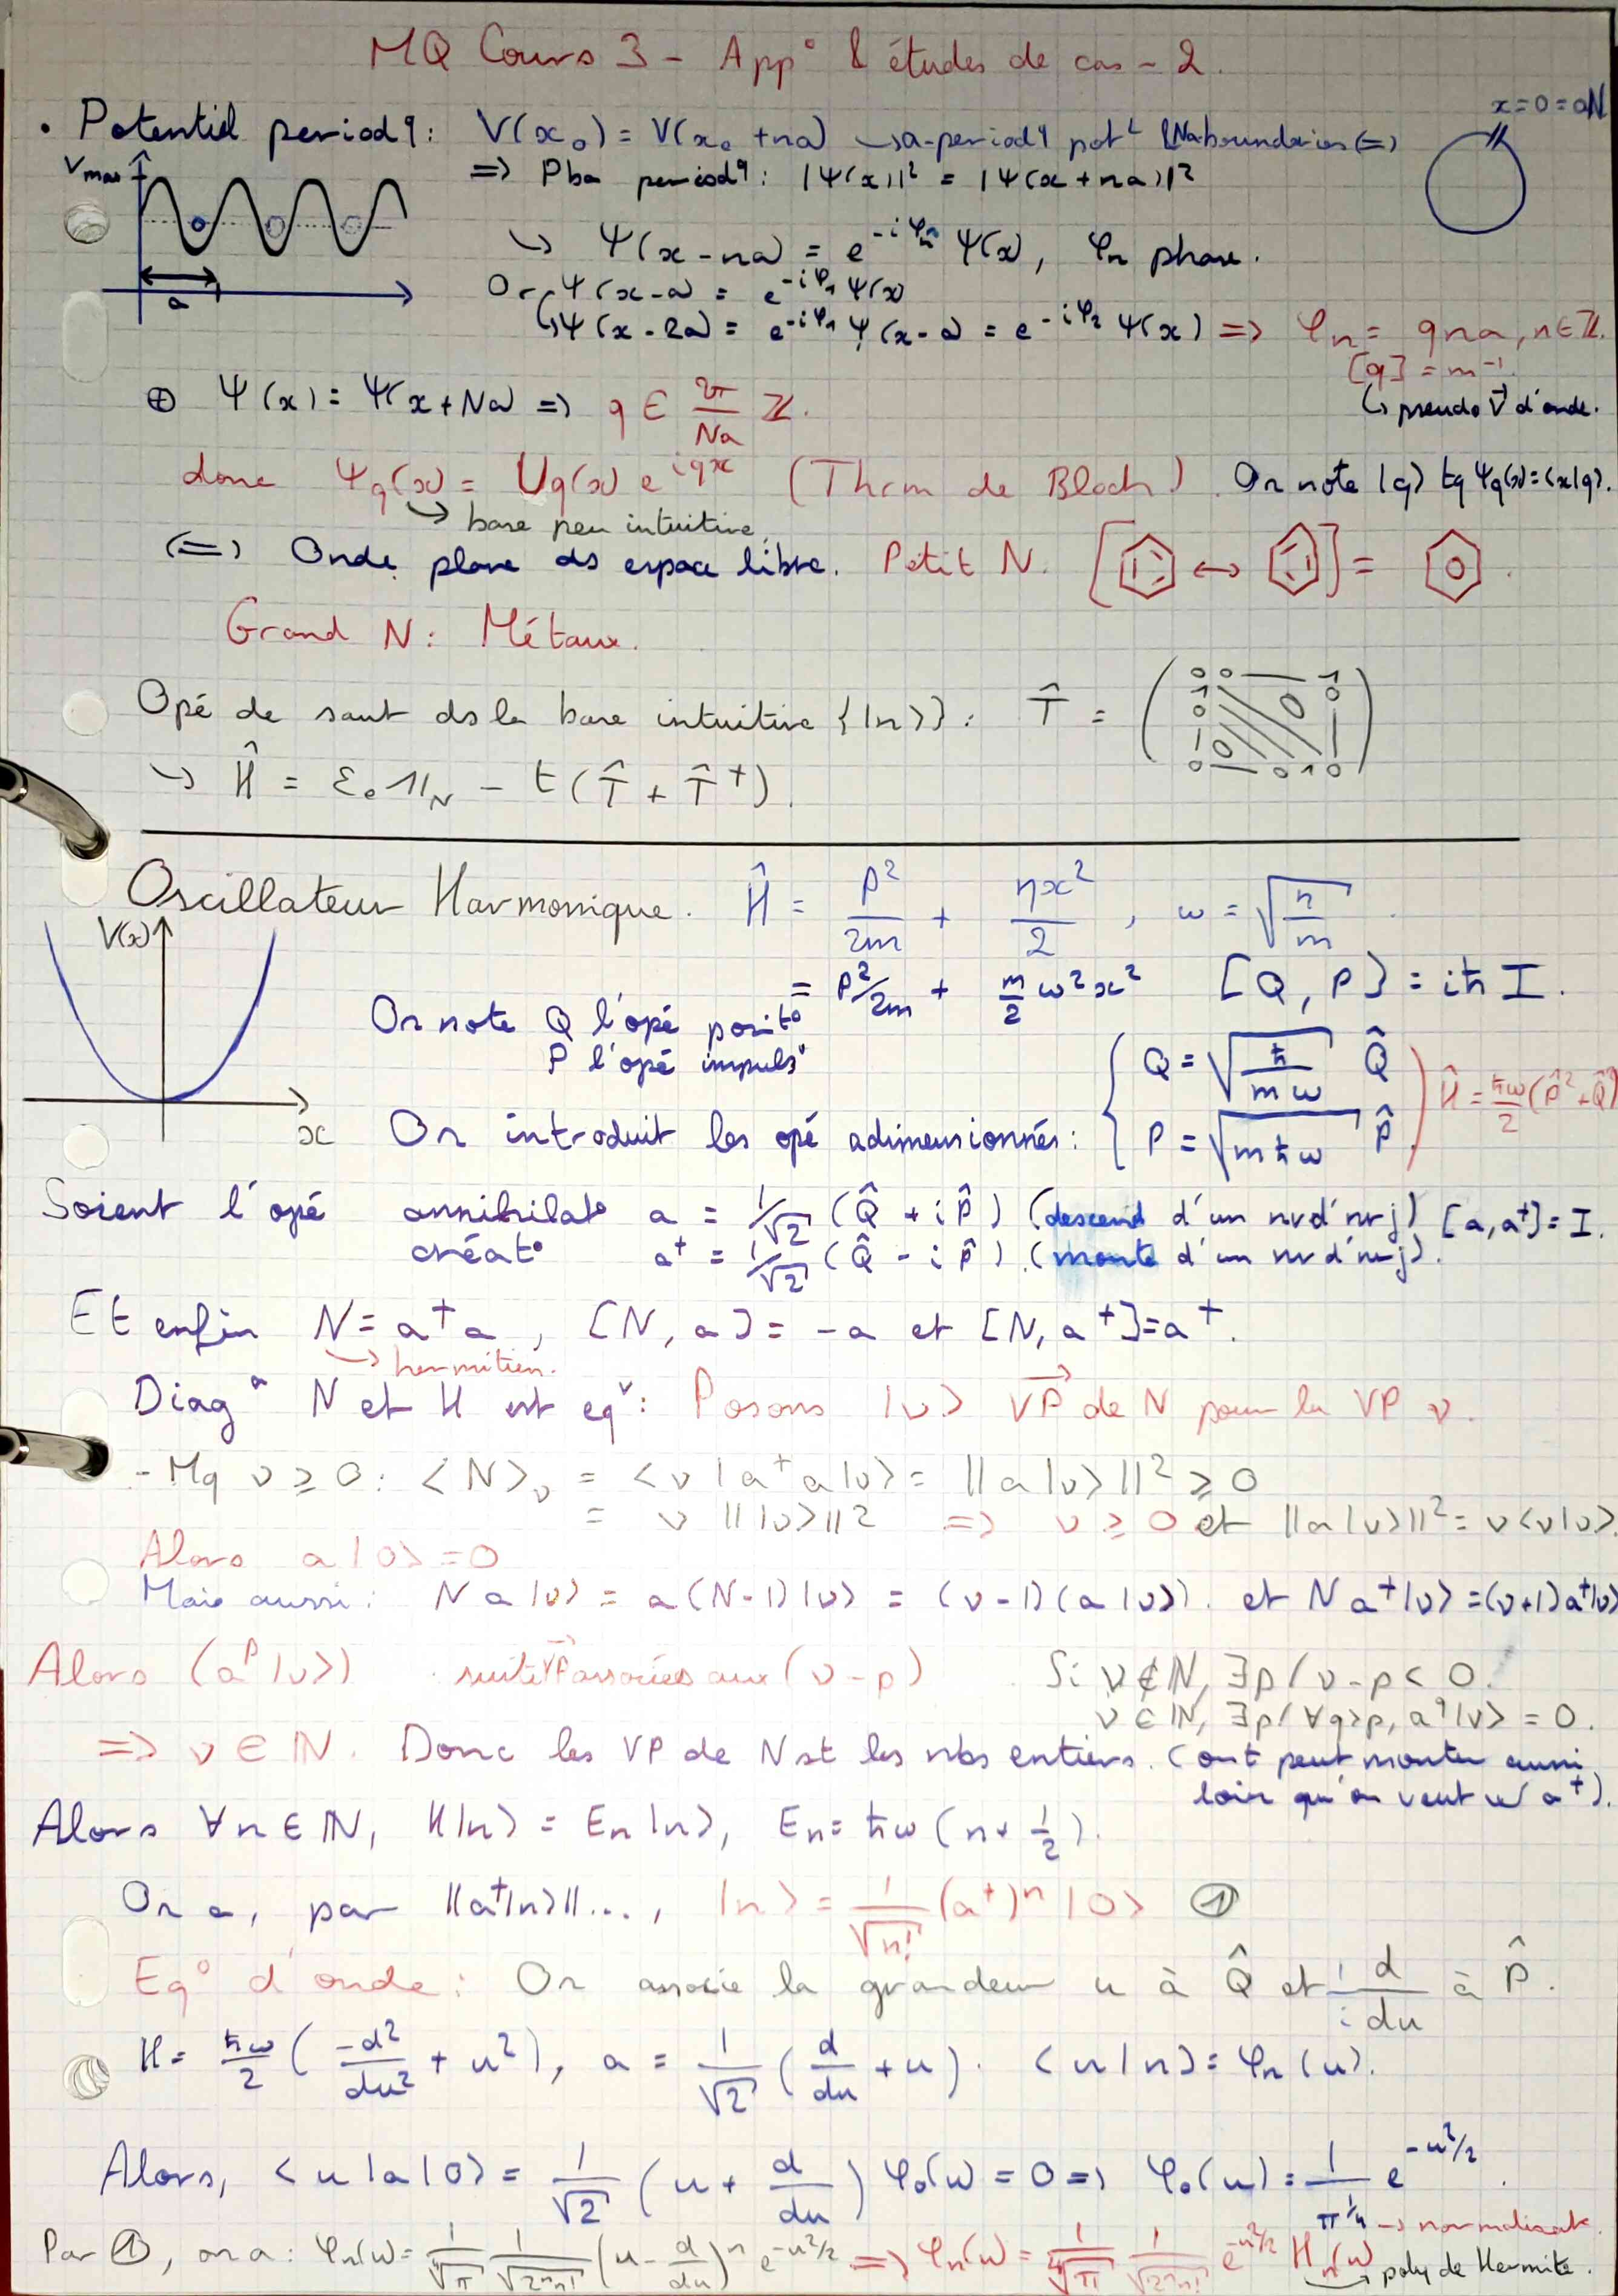 MQ Cours 3 - App° & études de cas - 2.
x=0=aN
• Potentiel period q: V(x₀) = V(x₀ + na) ↪ a-period q pot^L (Na boundaries (=)
V max
=> Pba period q: |Ψ(x)|² = |Ψ(x+na)|²
↪ Ψ(x-na) = e^{-iφn} Ψ(x), φn phase.
a
Or Ψ(x-a) = e^{-iφ1} Ψ(x)
↪ Ψ(x-2a) = e^{-iφ1} Ψ(x-a) = e^{-iφ2} Ψ(x) => φn = qna, n∈ℤ.
[q] = m⁻¹.
↪ pseudo V⃗ d'onde.
⊕ Ψ(x) = Ψ(x+Na) => q ∈ 2π/Na ℤ.
donc Ψq(x) = Uq(x) e^{iqx} (Thrm de Bloch). On note |q> tq Ψq(x)=<x|q>.
↪ base peu intuitive.
(=) Onde plane ds espace libre. Petit N. [ ↔ ] =
Grand N: Métaux.
Opé de saut ds la base intuitive {|n>}: T̂ = (0 0 — 1 1 0 0 0 0 0 — 0 1 0)
↪ Ĥ = ε₀ 1l_N - t(T̂ + T̂⁺).
Oscillateur Harmonique. Ĥ = p²/2m + ηx²/2, ω = √(η/m).
V(x)
= p²/2m + m/2 ω²x² [Q, P] = iħ I.
On note Q l'opé posit°
P l'opé impuls°
x
On introduit les opé adimensionnés: { Q = √(ħ/mω) Q̂
P = √(mħω) P̂ ) Ĥ = ħω/2 (P̂² + Q̂²)
Soient l'opé annihilat° a = 1/√2 (Q̂ + iP̂) (descend d'un nv d'nrj) [a,a⁺]=I.
créat° a⁺ = 1/√2 (Q̂ - iP̂). (monte d'un nv d'nrj).
Et enfin N = a⁺a, [N, a] = -a et [N, a⁺]=a⁺.
↪ hermitien.
Diag° N et H est eq^v: Posons |ν> VP⃗ de N pour la VP ν.
- Mq ν ≥ 0: <N>ν = <ν|a⁺a|ν> = ||a|ν>||² ≥ 0
= ν || |ν> ||² => ν ≥ 0 et ||a|ν>||² = ν<ν|ν>.
Alors a|0> = 0
Mais aussi: Na|ν> = a(N-1)|ν> = (ν-1)(a|ν>). et Na⁺|ν> = (ν+1)a⁺|ν>
Alors (a^p|ν>) suite VP⃗ associées aux (ν-p) Si ν∉ℕ, ∃p/ν-p < 0.
ν∈ℕ, ∃p/∀q>p, a^q|ν> = 0.
=> ν ∈ ℕ. Donc les VP de N st les nbs entiers. (ont peut monter aussi
loin qu'on veut w/ a⁺).
Alors ∀n∈ℕ, H|n> = En|n>, En = ħω(n + 1/2).
On a, par ||a⁺|n>||..., |n> = 1/√n! (a⁺)ⁿ |0> ①
Eq° d'onde: On associe la grandeur u à Q̂ et 1/i d/du à P̂.
H = ħω/2 (-d²/du² + u²), a = 1/√2 (d/du + u). <u|n> = φn(u).
Alors, <u|a|0> = 1/√2 (u + d/du) φ₀(u) = 0 => φ₀(u) = 1/π^{1/4} e^{-u²/2}.
→ normalisat°.
Par ①, on a: φn(u) = 1/⁴√π 1/√(2ⁿn!) (u - d/du)ⁿ e^{-u²/2} => φn(u) = 1/⁴√π 1/√(2ⁿn!) e^{-u²/2} Hn(u)
↪ poly de Hermite.